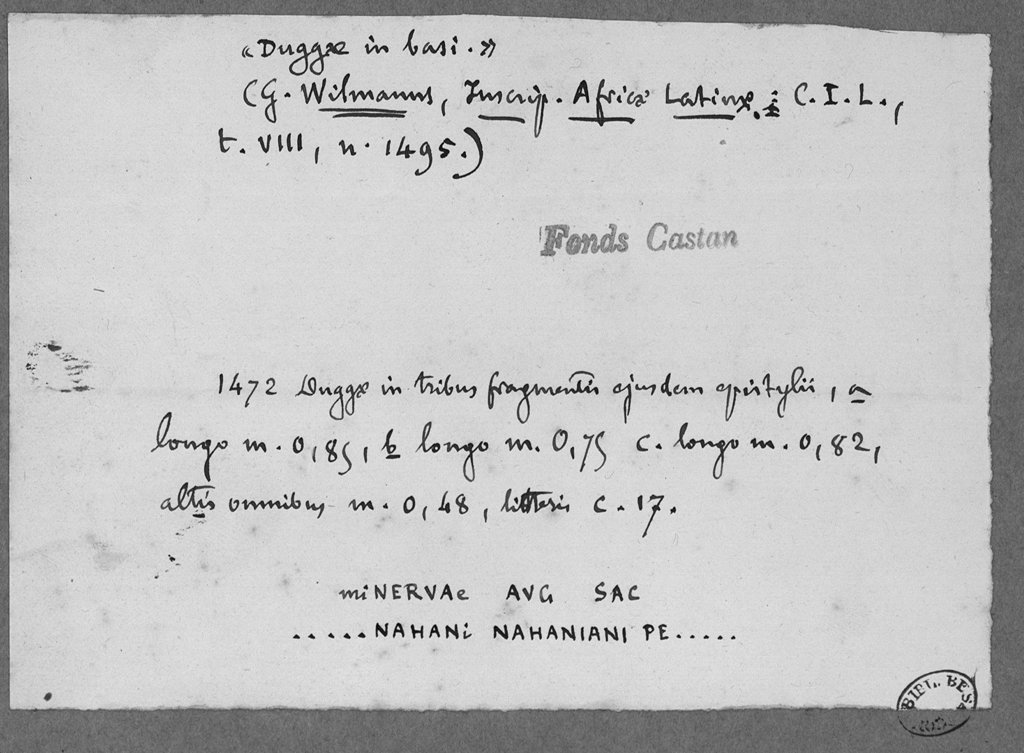 «Duggæ in basi.»
(G. Wilmanns, Inscrip. Africæ Latinæ, : C. I. L.,
t. VIII, n. 1495.)
Fonds Castan
1472 Duggæ in tribus fragmentis ejusdem epistylii, a
longo m. 0,85, b longo m. 0,75 c. longo m. 0,82,
altis omnibus m. 0,48, litteris c. 17.
miNERVAe AVG SAC
.....NAHANi NAHANIANI PE.....
BIBL. BES.